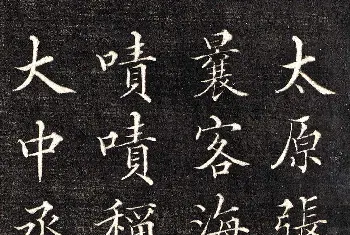 太原張
曩客海
嘖嘖稱
大中丞